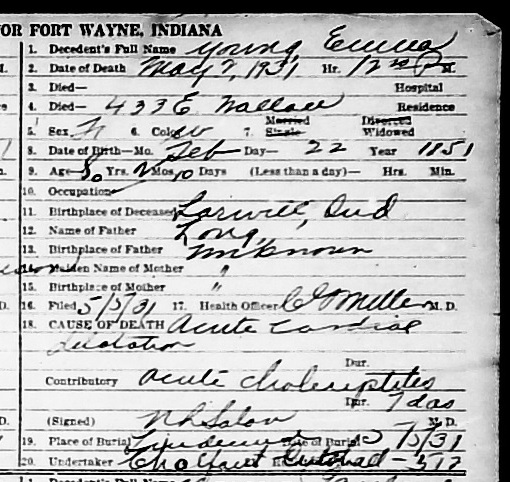 OR FORT WAYNE, INDIANA
1. Decedent's Full Name Young, Emma
2. Date of Death May 2, 1931 Hr. 12 P M.
3. Died— Hospital
4. Died— 433 E Wallace Residence
5. Sex F 6. Color W 7. Married Single Divorced Widowed
8. Date of Birth—Mo. Feb Day— 22 Year 1851
9. Age 80 Yrs. 2 Mos. 10 Days (Less than a day)— Hrs. Min.
10. Occupation
11. Birthplace of Deceased Larwill, Ind
12. Name of Father Long,
13. Birthplace of Father Unknown
14. Maiden Name of Mother "
15. Birthplace of Mother "
16. Filed 5/5/31 17. Health Officer Miller M. D.
18. CAUSE OF DEATH Acute Cardiac
dilatation
Dur.
Contributory Acute
Dur. 7 das
(Signed) M. D.
19. Place of Burial Lindenwood Date of Burial 5/5/31
20. Undertaker Chalfant